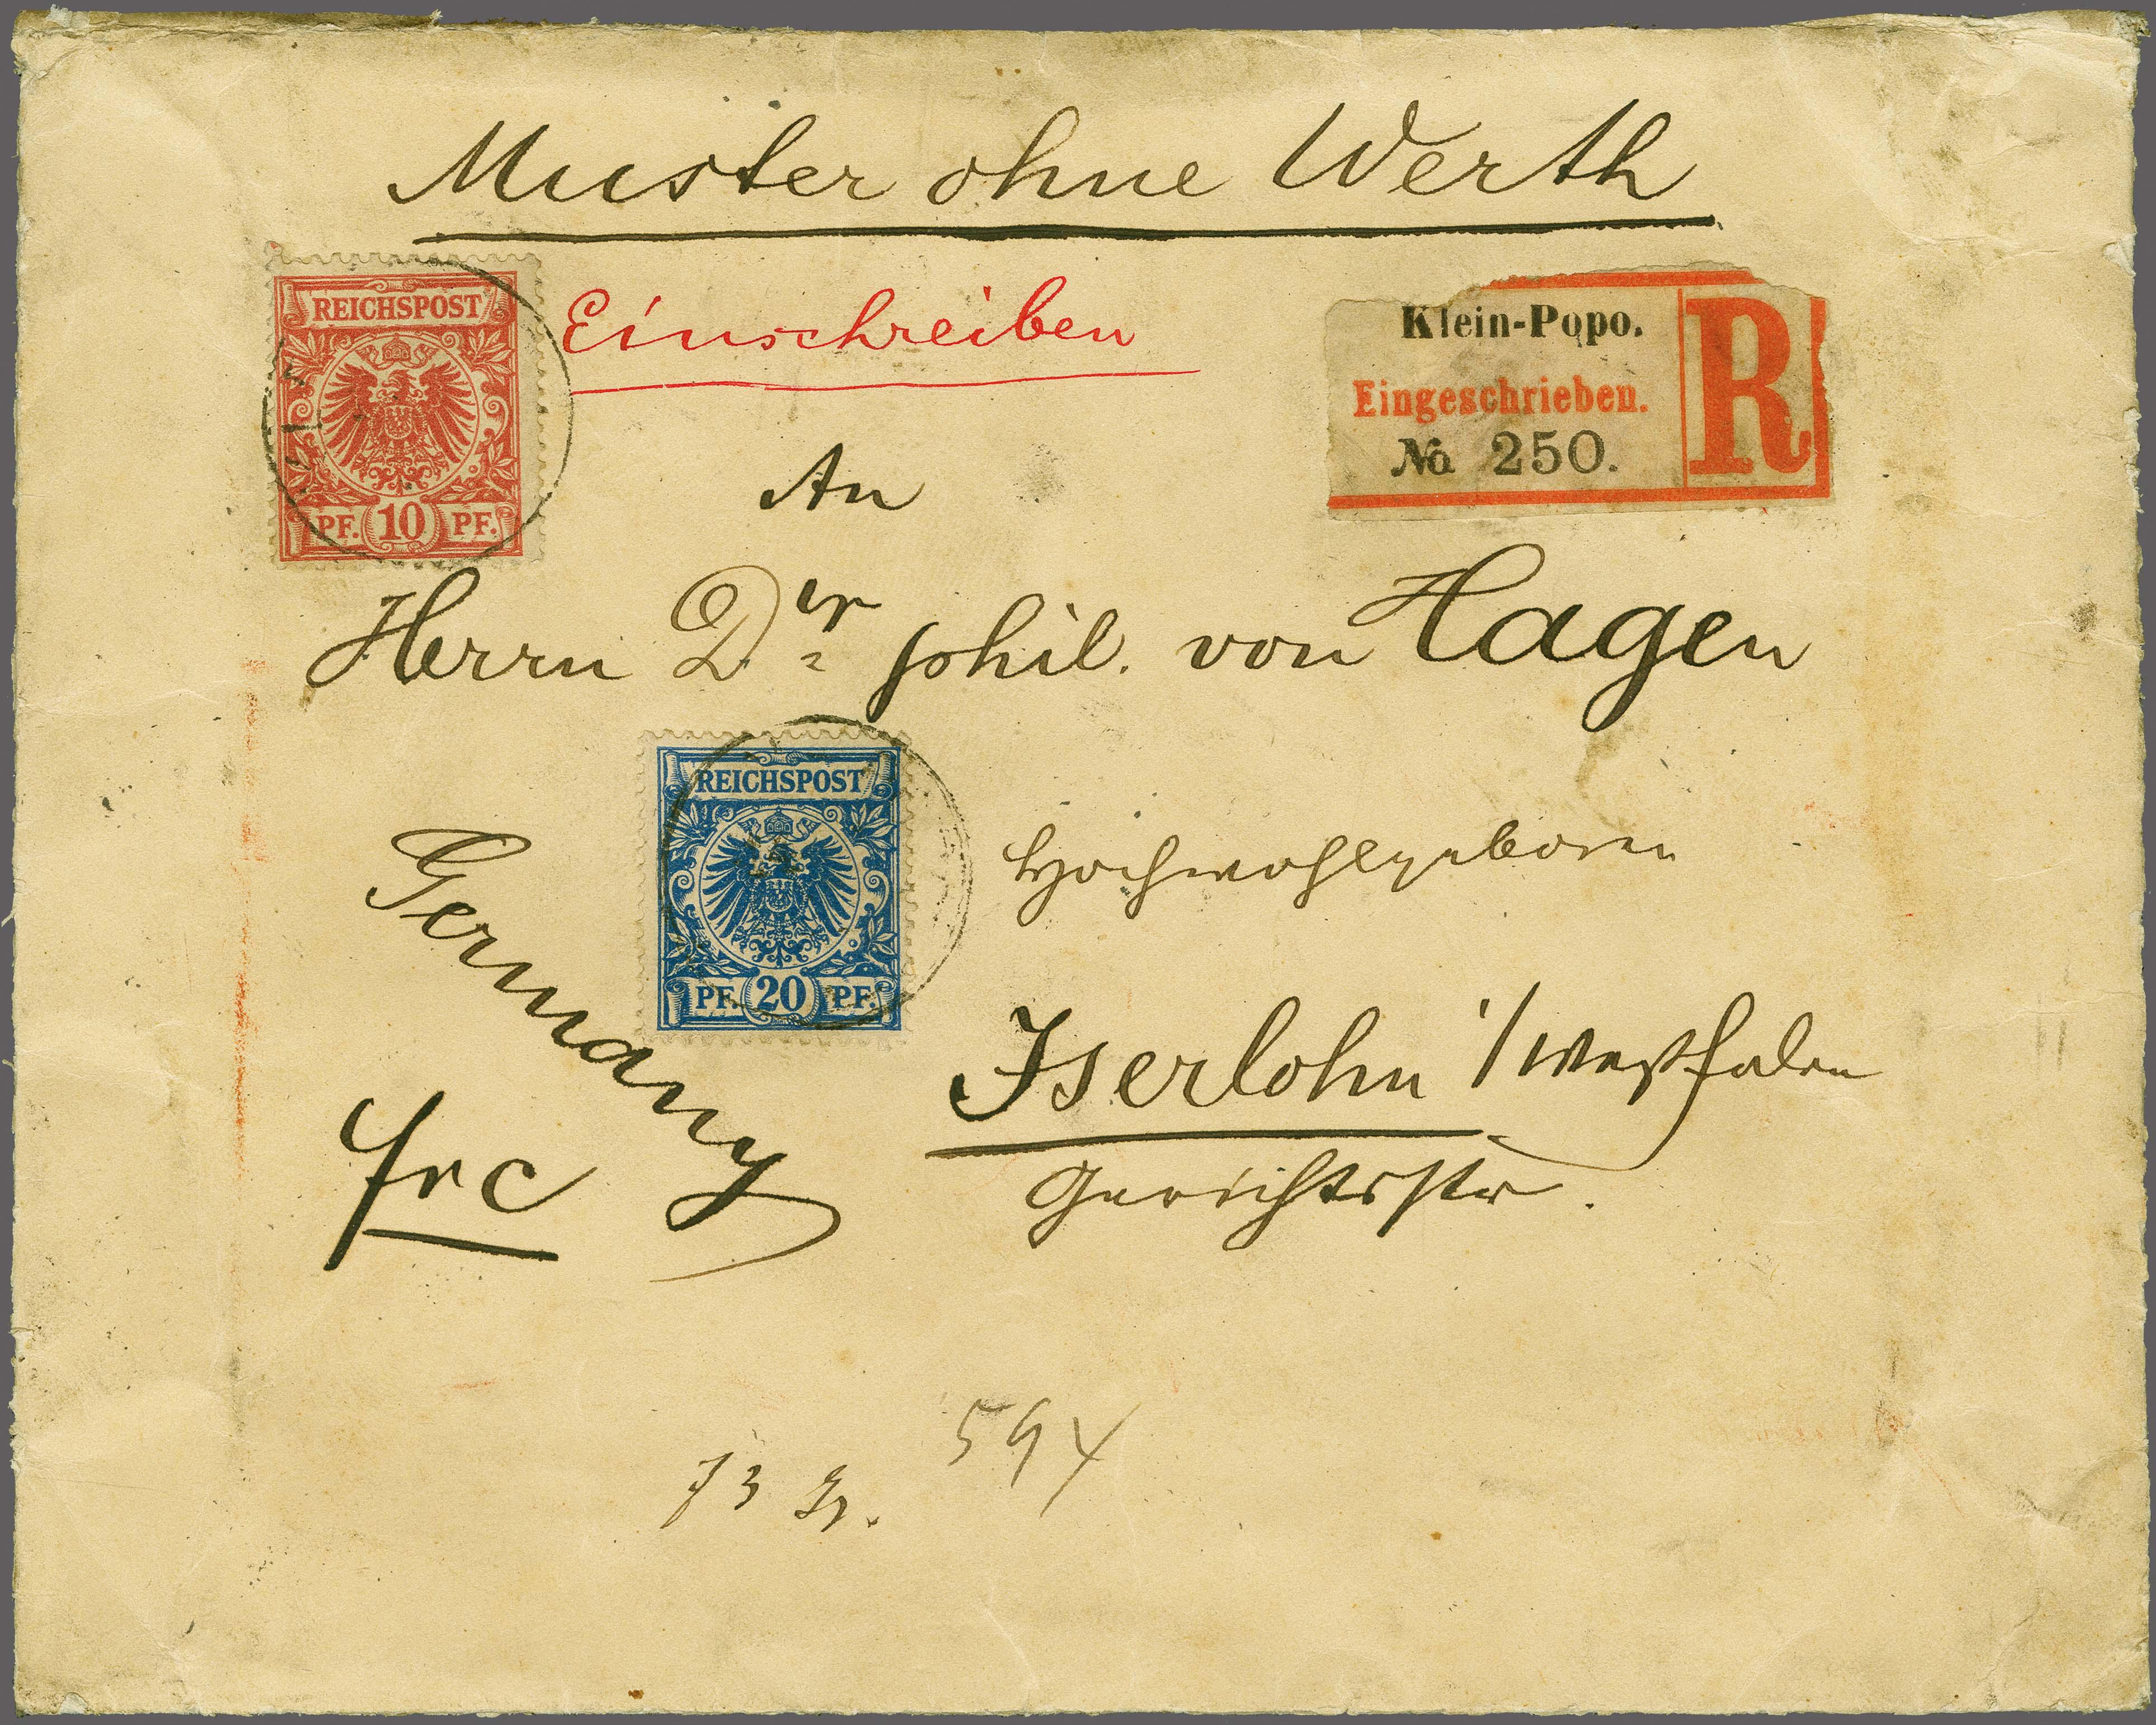 Muster ohne Werth
REICHSPOST
PF. 10 PF.
Einschreiben
Klein-Popo.
Eingeschrieben.
No 250.
R
An
Herrn Der phil. von Hagen
REICHSPOST
PF. 20 PF.
Hochwohlgeboren
Germany
Iserlohn i/Westfalen
frc
Gerichtsstr.
594
73 Gr.